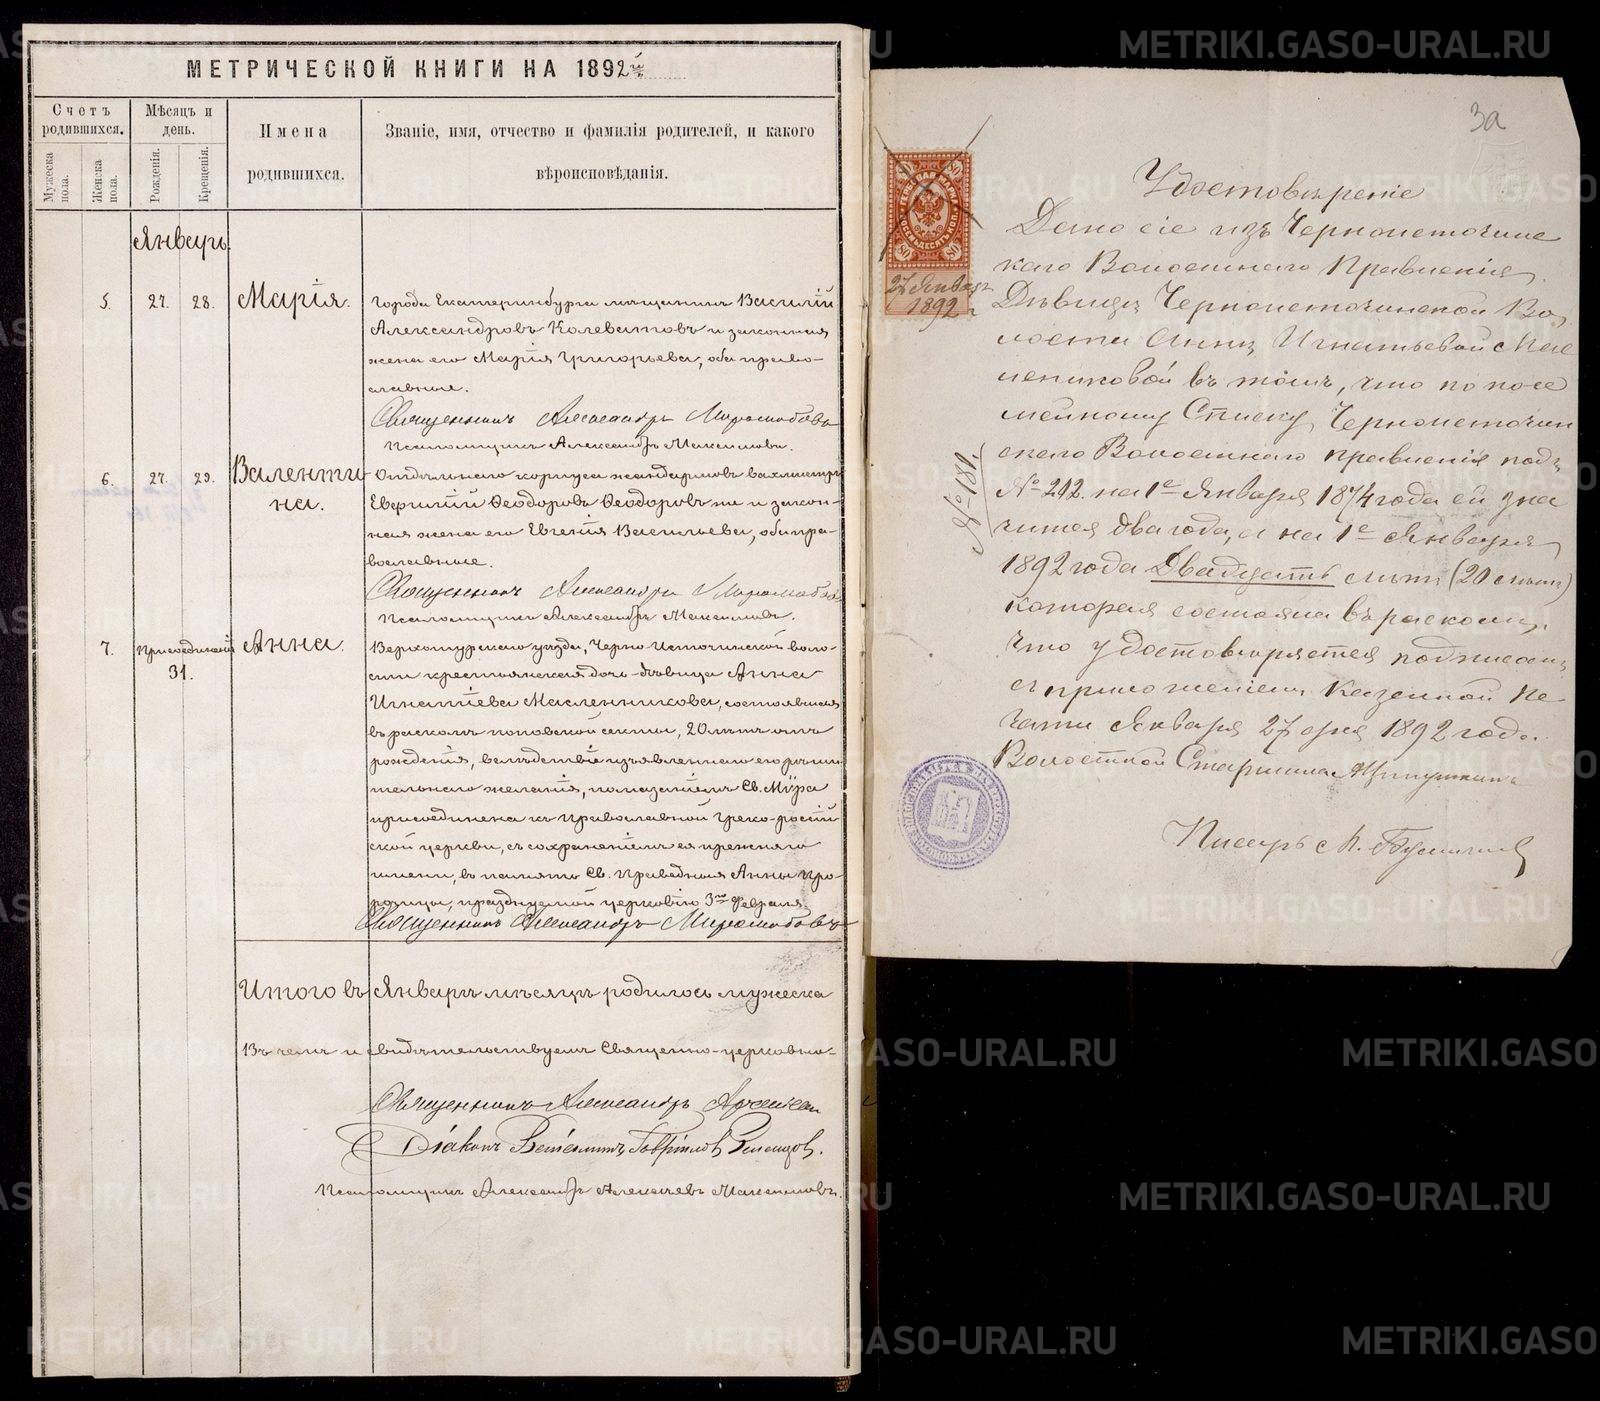 МЕТРИЧЕСКОЙ КНИГИ НА 1892
Счетъ родившихся.
Мѣсяцъ и день.
Имена родившихся.
Званіе, имя, отчество и фамилія родителей, и какого вѣроисповѣданія.
Мужеска пола.
Женска пола.
Рожденія.
Крещенія.
Январь
5. 27. 28. Марія.
Города Екатеринбурга мѣщанинъ Василій
Александровъ Колеватовъ и законная
жена его Марія Григорьева, оба право-
славные.
Священникъ Александръ
Псаломщикъ Александръ Максимовъ.
6. 27. 29. Валенти
на.
Отдѣльнаго корпуса жандармовъ вахмистръ
Евфимій Ѳеодоровъ Ѳеодоровъ же и закон-
ная жена его Евгенія Васильева, оба пра-
вославные.
Священникъ Александръ
Псаломщикъ Александръ Максимовъ.
7. Присоединеній
31.
Анна.
Верхотурскаго уѣзда, Черно-Источинской воло-
сти крестьянская дочь-дѣвица Анна
Игнатіева Масленникова, состоявшая
въ расколѣ поповской секты, 20 лѣтъ отъ
рожденія, вслѣдствіе изъявленнаго ею рѣши
тельнаго желанія, помазаніемъ Св. Мѵра
присоединена къ православной Греко-россій
ской церкви, съ сохраненіемъ ея прежняго
имени, въ память Св. Праведныя Анны про-
рочицы, празднуемой церковію 3го Февраля.
Священникъ Александръ
Итого въ Январѣ мѣсяцѣ родилось мужеска
Въ чемъ и свидѣтельствуемъ Священно-церковно-
Священникъ Александръ
Діаконъ
Псаломщикъ Александръ Алексѣевъ Максимовъ.
3а
80 80
ГЕРБОВАЯ МАРКА
ВОСЕМЬДЕСЯТЪ КОП.
80 80
27 Января
1892 г
№ 180.
Удостовѣреніе
Дано сіе изъ Черноисточинс
каго Волостнаго Правленія
Дѣвицѣ Черноисточинской Во
лости Аннѣ Игнатьевой Мас
лениковой въ томъ, что по посе
мейному Списку Черноисточин
скаго Волостнаго правленія подъ
№ 212. на 1е Января 1874 года ей зна
чится два года, а на 1е Января
1892 года Двадцать лѣтъ (20 лѣтъ)
которая состояла въ расколѣ,
что удостовѣряется подписомъ
съ приложеніемъ казенной пе-
чати Января 27 дня 1892 года.
Волостной Старшина
Писарь
METRIKI.GASO-URAL.RU